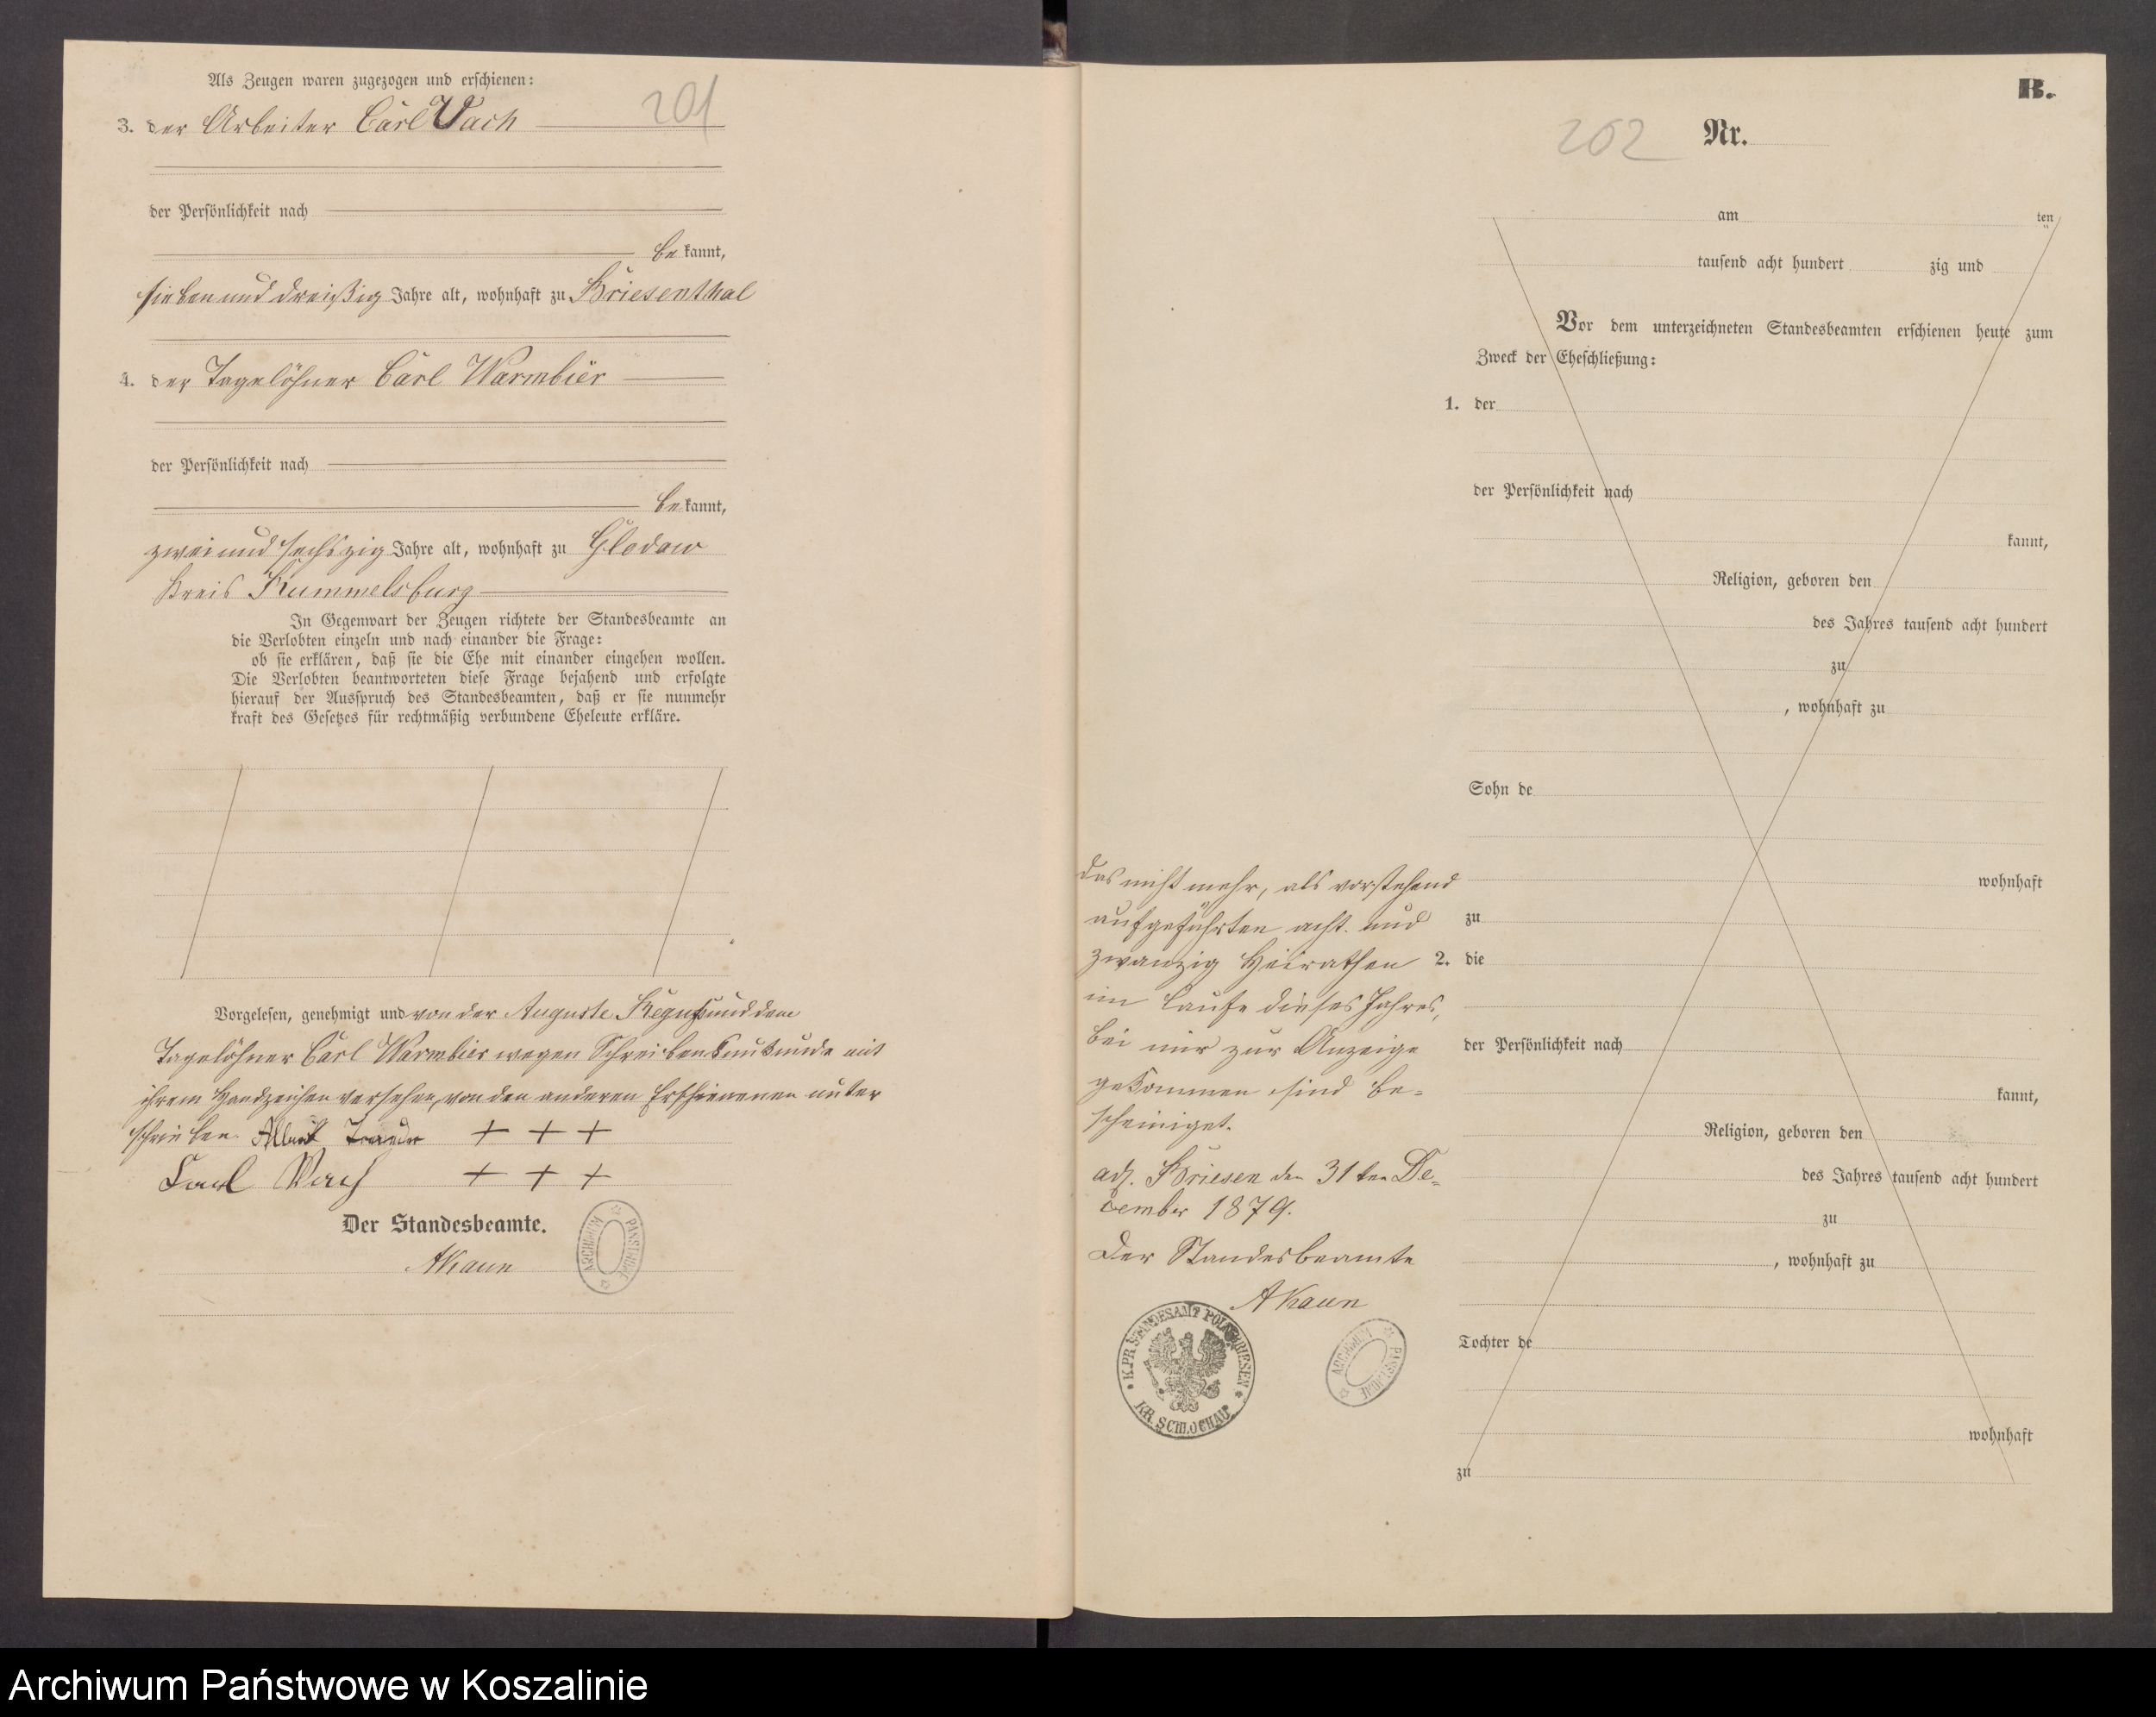 Als Zeugen waren zugezogen und erschienen:
201
3. der Arbeiter Carl Vach
der Persönlichkeit nach
bekannt,
sieben und dreißig Jahre alt, wohnhaft zu Briesenthal
4. der Tagelöhner Carl Warmbier
der Persönlichkeit nach
bekannt,
zwei und sechszig Jahre alt, wohnhaft zu Glodow
Kreis Rummelsburg
In Gegenwart der Zeugen richtete der Standesbeamte an
die Verlobten einzeln und nach einander die Frage:
ob sie erklären, daß sie die Ehe mit einander eingehen wollen.
Die Verlobten beantworteten diese Frage bejahend und erfolgte
hierauf der Ausspruch des Standesbeamten, daß er sie nunmehr
kraft des Gesetzes für rechtmäßig verbundene Eheleute erkläre.
Vorgelesen, genehmigt und von der Auguste und dem
Tagelöhner Carl Warmbier wegen Schreibensunkunde mit
ihrem Handzeichen versehen, von den anderen Erschienenen unter
schrieben Albert + + +
Carl Vach + + +
Der Standesbeamte.
AKaun
ARCHIWUM PAŃSTWOWE
B.
202 Nr.
am ten
tausend acht hundert zig und
Vor dem unterzeichneten Standesbeamten erschienen heute zum
Zweck der Eheschließung:
1. der
der Persönlichkeit nach
kannt,
Religion, geboren den
des Jahres tausend acht hundert
zu
, wohnhaft zu
Sohn de
wohnhaft
zu
2. die
der Persönlichkeit nach
kannt,
Religion, geboren den
des Jahres tausend acht hundert
zu
, wohnhaft zu
Tochter de
wohnhaft
zu
das nicht mehr, als vorstehend
aufgeführten acht und
zwanzig Heirathen
im Laufe dieses Jahres,
bei mir zur Anzeige
gekommen sind be-
scheiniget.
adl. Briesen den 31ten De-
cember 1879.
Der Standesbeamte
AKaun
K. PR. STANDESAMT POLN. BRIESEN
KR. SCHLOCHAU
ARCHIWUM PAŃSTWOWE
Archiwum Państwowe w Koszalinie